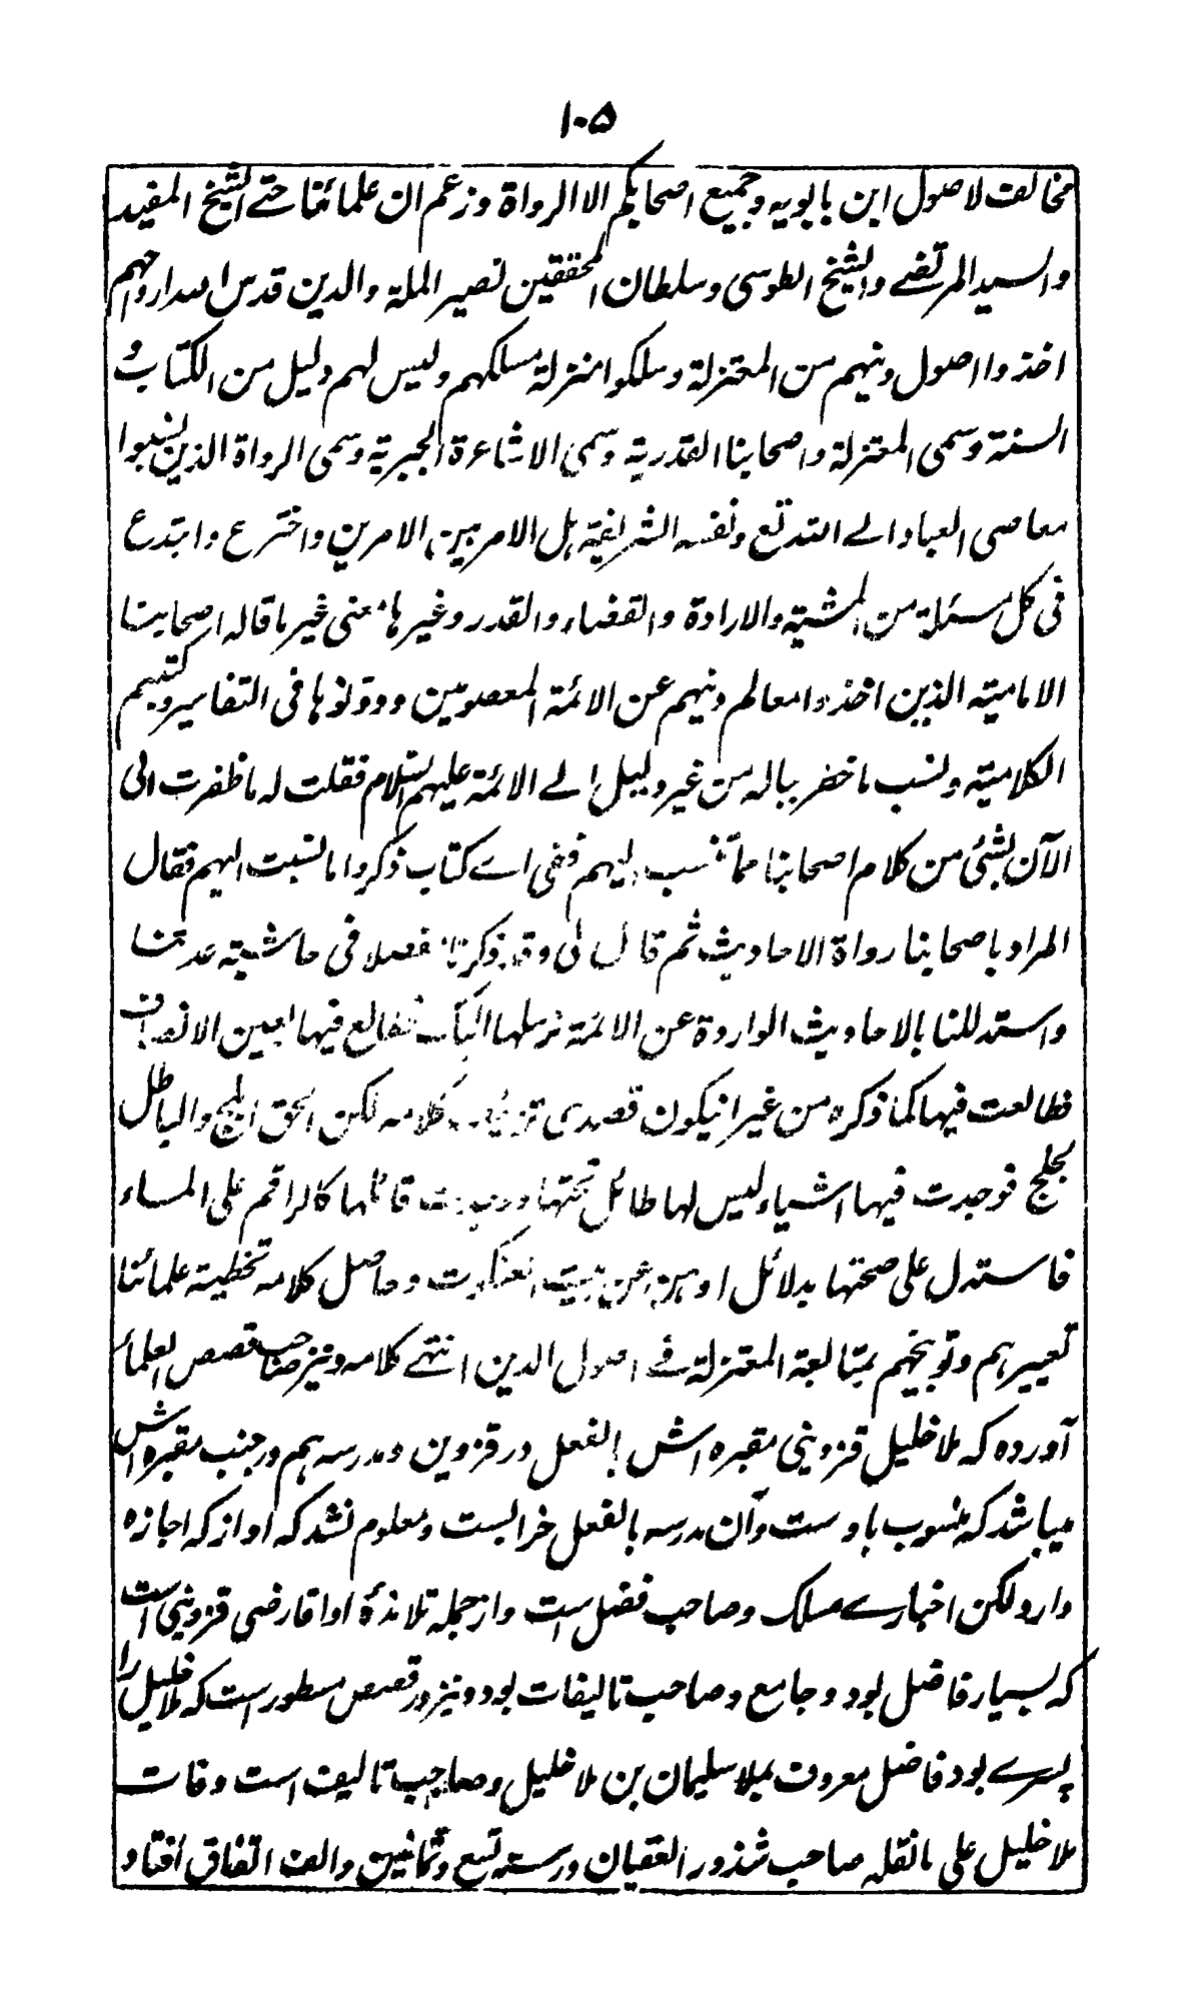 ۱۰۵
مخالفت لاصول ابن بابویه وجمیع اصحابکم الا الرواة وزعم ان علمائنا حتے الشیخ المفید
والسید المرتضے والشیخ الطوسی وسلطان المحققین نصیر الملة والدین قدس اللہ ارواحہم
اخذوا اصول دینہم من المعتزلة وسلکوا منزلة مسلکہم ولیس لہم دلیل من الکتاب و
السنة وسمی المعتزلة واصحابنا القدریة وسمی الاشاعرة الجبریة وسمی الرواة الذین نسبوا
معاصی العباد الے اللہ تع ونفسہ الشریفة بل الامر بین الامرین واخترع وابتدع
فی کل مسئلة من المشیة والارادة والقضاء والقدر وغیرہا معنی غیر ما قالہ اصحابنا
الامامیة الذین اخذوا معالم دینہم عن الائمة المعصومین ودونوہا فی التفاسیر وکتبہم
الکلامیة ونسب ما خطر ببالہ من غیر دلیل الے الائمة علیہم السلام فقلت لہ ما ظفرت الی
الآن بشئ من کلام اصحابنا مما تنسب الیہم ففی اے کتاب ذکروا ما نسبت الیہم فقال
المراد باصحابنا رواة الاحادیث ثم قال لی وقد ذکرنا مفصلا فی حاشیة عدتنا
واستدللنا بالاحادیث الواردة عن الائمة نرسلہا الیک فطالع فیہا بعین الانصاف
فطالعت فیہا کما ذکرہ من غیر انیکون قصدی تزییف کلامہ لکن الحق ابلج والباطل
لجلج فوجدت فیہا اشیاء لیس لہا طائل تحتہا ووجدت قائلہا کالراقم علی الماء
فاستدل علی صحتہا بدلائل اوہن من بیت العنکبوت وحاصل کلامہ تخطیة علمائنا
تعییرہم وتوبیخہم بمتابعة المعتزلة فے اصول الدین انتہے کلامہ ونیز صاحب قصص العلماء
آوردہ کہ ملا خلیل قزوینی مقبرہ اش بالفعل در قزوین ومدرسہ ہم در جنب مقبرہ اش
میباشد کہ منسوب باوست وآن مدرسہ بالفعل خرابست ومعلوم نشد کہ او از کہ اجازہ
دارد لکن اخبارے مسلک وصاحب فضل است واز جملہ تلامذۂ او آقا رضی قزوینی است
کہ بسیار فاضل بود وجامع وصاحب تالیفات بود ونیز در قصص مسطور است کہ ملا خلیل را
پسرے بود فاضل معروف بملا سلیمان بن ملا خلیل وصاحب تالیف است وفات
ملا خلیل علی ما نقلہ صاحب شذور العقیان در سنہ تسع وثمانین والف اتفاق افتاد